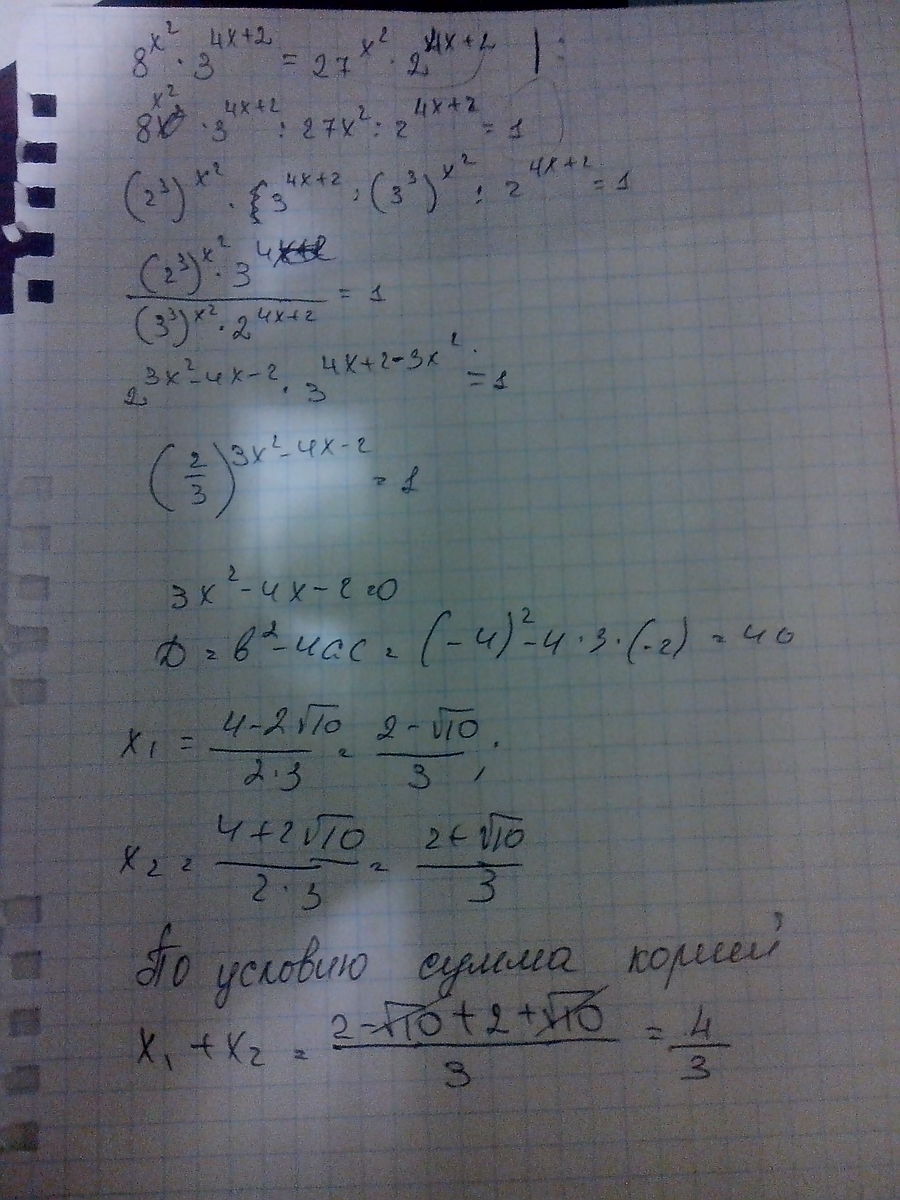 8^{x^2} · 3^{4x+2} = 27^{x^2} · 2^{4x+2} | :
8^{x^2} · 3^{4x+2} : 27x^2 : 2^{4x+2} = 1
(2^3)^{x^2} · 3^{4x+2} : (3^3)^{x^2} : 2^{4x+2} = 1
\frac{(2^3)^{x^2} · 3^{4x+2}}{(3^3)^{x^2} · 2^{4x+2}} = 1
2^{3x^2-4x-2} · 3^{4x+2-3x^2} = 1
(\frac{2}{3})^{3x^2-4x-2} = 1
3x^2-4x-2=0
D = b^2-4ac = (-4)^2-4·3·(-2) = 40
x_1 = \frac{4-2\sqrt{10}}{2·3} = \frac{2-\sqrt{10}}{3};
x_2 = \frac{4+2\sqrt{10}}{2·3} = \frac{2+\sqrt{10}}{3}
По условию сумма корней
x_1+x_2 = \frac{2-\sqrt{10}+2+\sqrt{10}}{3} = \frac{4}{3}